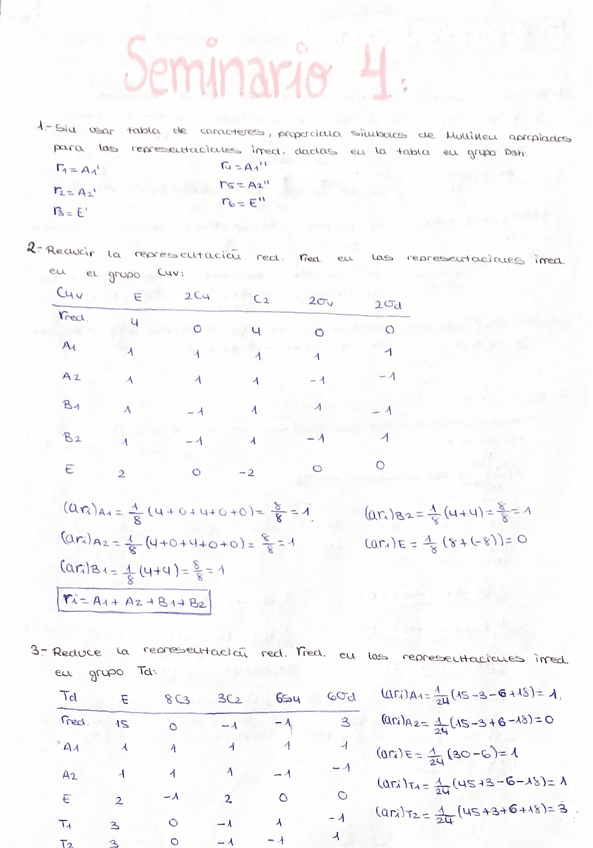 Seminario 4:
1.- Sin usar tabla de caracteres, proporciona símbolos de Mulliken apropiados
para las representaciones irred. dadas en la tabla en grupo D3h:
Γ1 = A1' Γ4 = A1''
Γ2 = A2' Γ5 = A2''
Γ3 = E' Γ6 = E''
2.- Reducir la representación red. Γred. en las representaciones irred.
en el grupo C4v:
C4v E 2C4 C2 2σv 2σd
Γred. 4 0 4 0 0
A1 1 1 1 1 1
A2 1 1 1 -1 -1
B1 1 -1 1 1 -1
B2 1 -1 1 -1 1
E 2 0 -2 0 0
(ari)A1 = 1/8 (4+0+4+0+0) = 8/8 = 1 (ari)B2 = 1/8 (4+4) = 8/8 = 1
(ari)A2 = 1/8 (4+0+4+0+0) = 8/8 = 1 (ari)E = 1/8 (8+(-8)) = 0
(ari)B1 = 1/8 (4+4) = 8/8 = 1
Γi = A1 + A2 + B1 + B2
3.- Reduce la representación red. Γred. en las representaciones irred.
en grupo Td:
Td E 8C3 3C2 6S4 6σd (ari)A1 = 1/24 (15-3-6+18) = 1
Γred. 15 0 -1 -1 3 (ari)A2 = 1/24 (15-3+6-18) = 0
A1 1 1 1 1 1 (ari)E = 1/24 (30-6) = 1
A2 1 1 1 -1 -1
E 2 -1 2 0 0 (ari)T1 = 1/24 (45+3-6-18) = 1
T1 3 0 -1 1 -1 (ari)T2 = 1/24 (45+3+6+18) = 3
T2 3 0 -1 -1 1